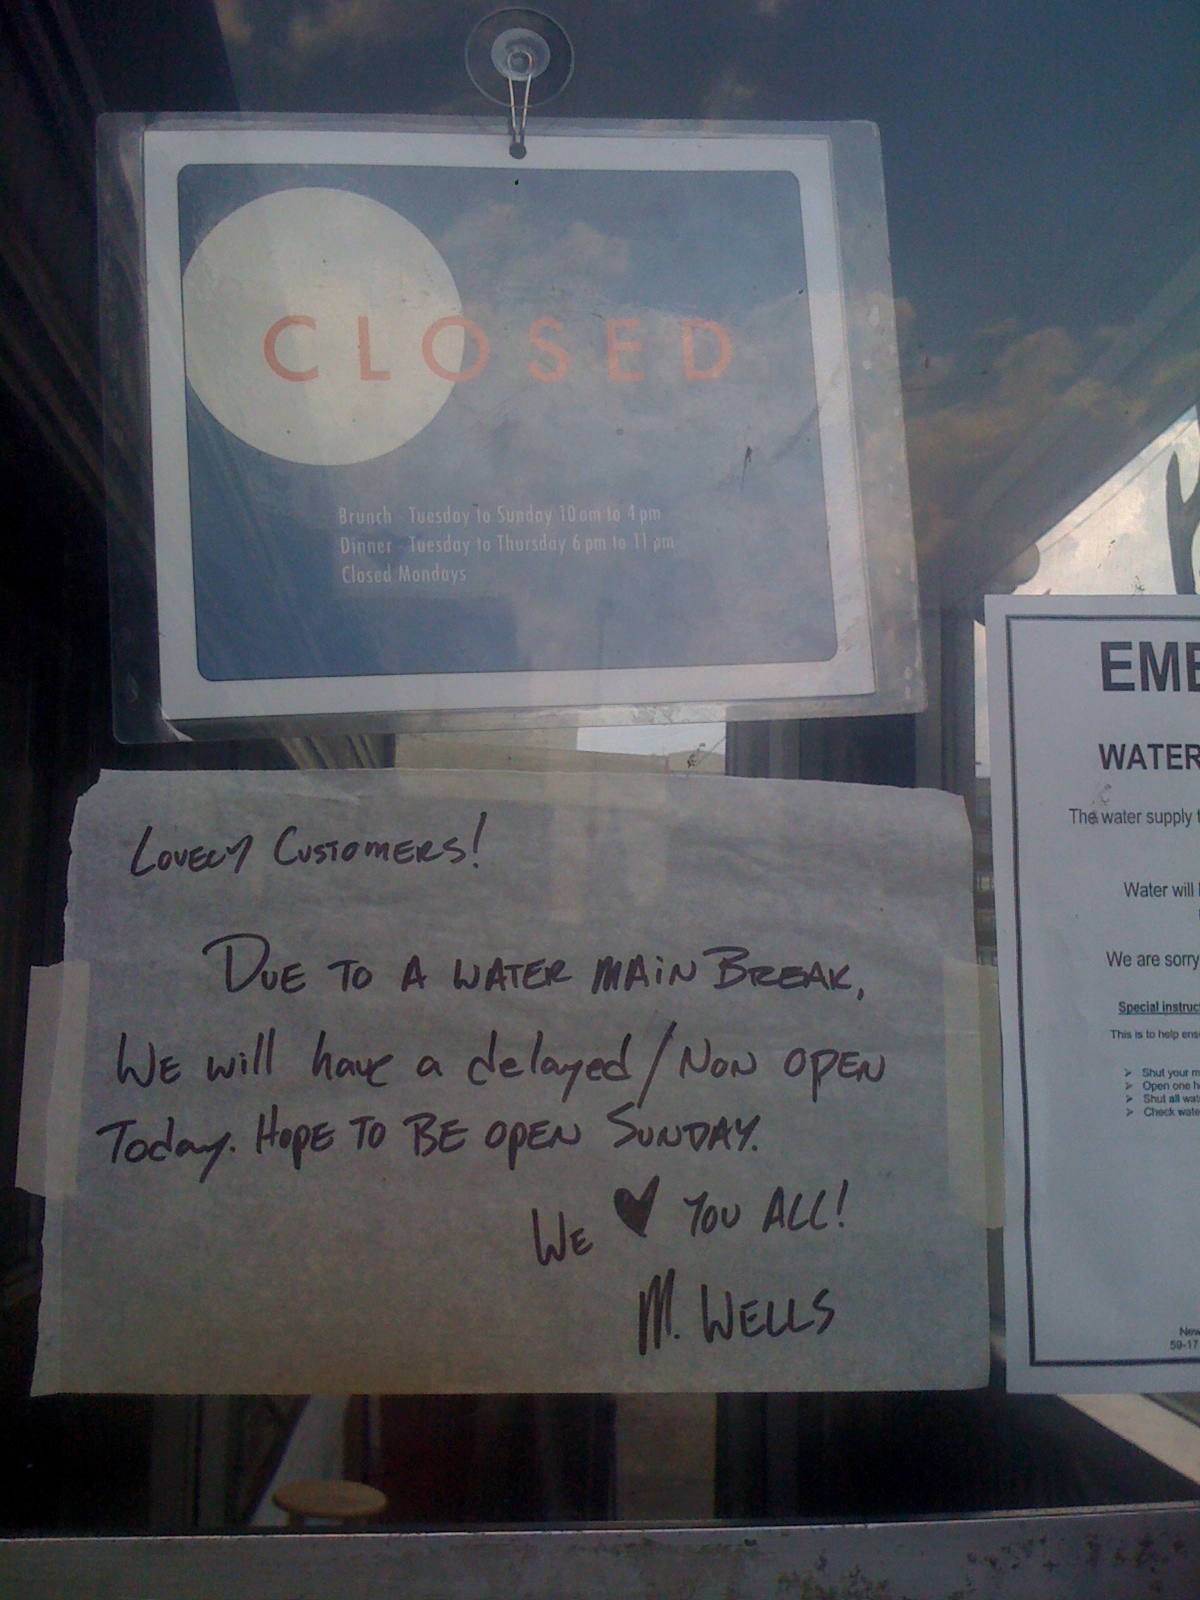 CLOSED
Brunch - Tuesday to Sunday 10 am to 4 pm
Dinner - Tuesday to Thursday 6 pm to 11 pm
Closed Mondays
LOVELY CUSTOMERS!
DUE TO A WATER MAIN BREAK,
WE will have a delayed/NON OPEN
Today. HOPE TO BE OPEN SUNDAY.
WE ♥ YOU ALL!
M. WELLS
EME
WATER
The water supply
Water will
We are sorry
Special instruc
This is to help ens
➢ Shut your m
➢ Open one h
➢ Shut all wat
➢ Check wate
New
59-17